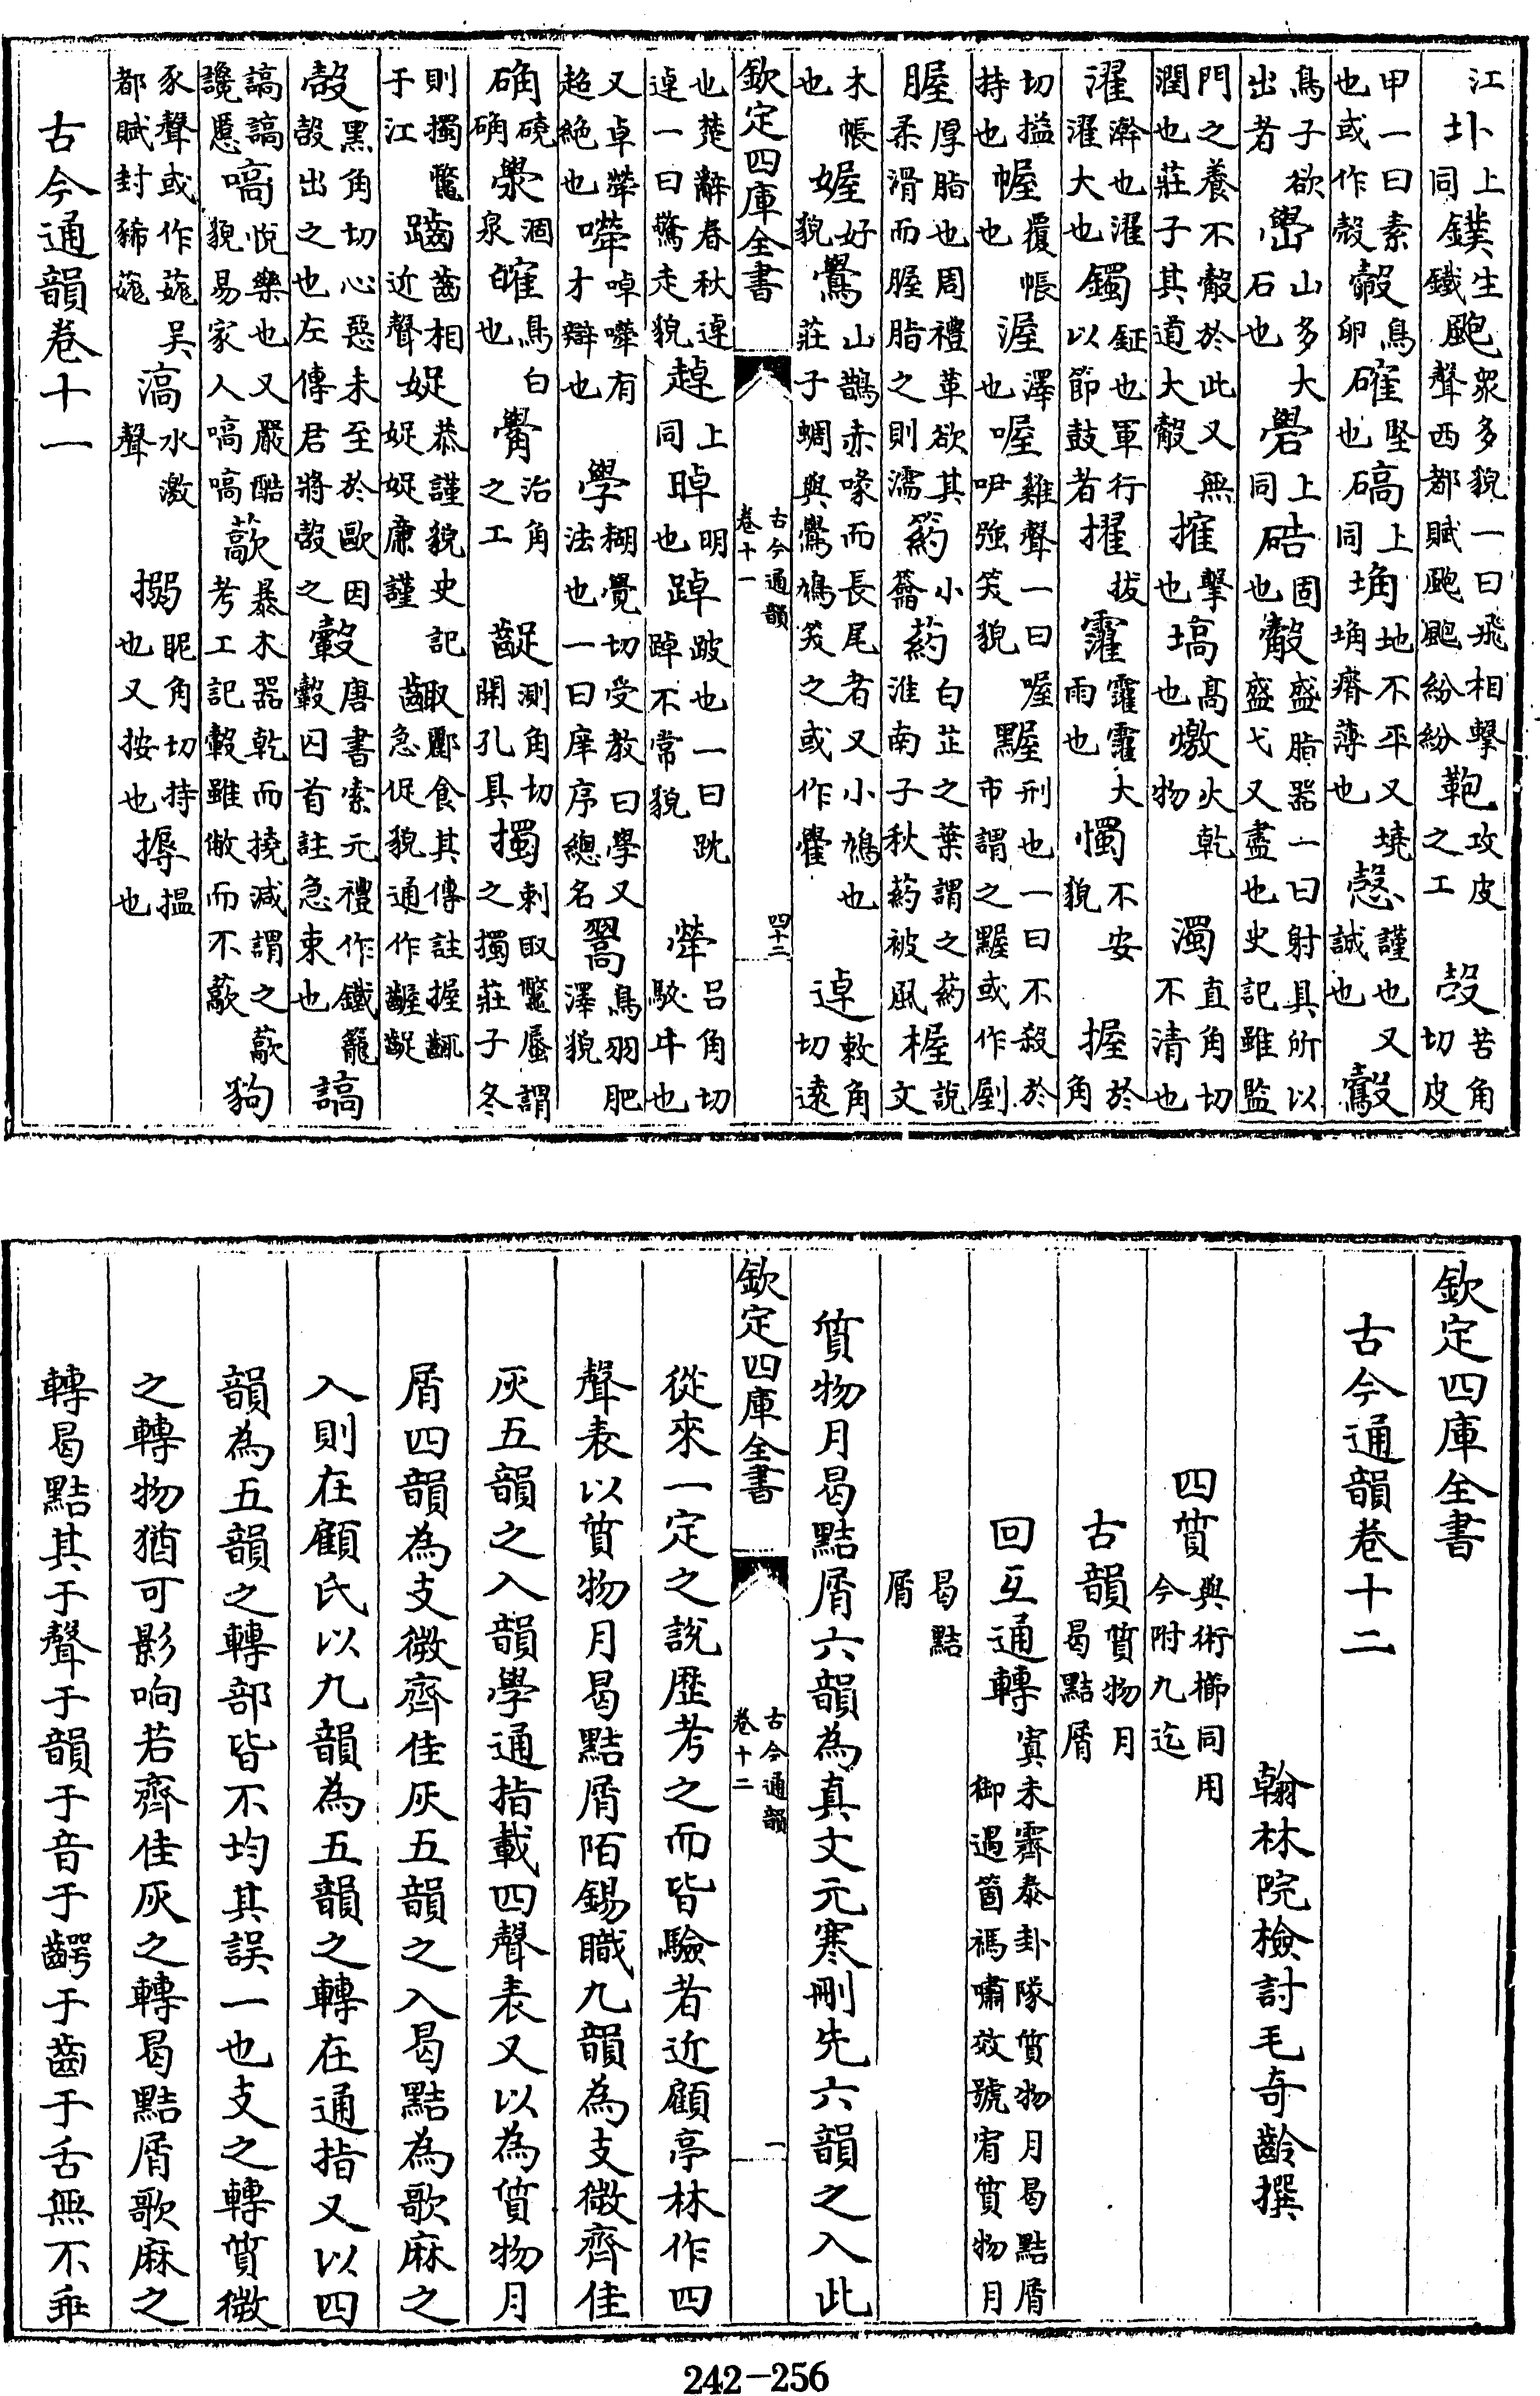 江圤上同鏷生鐵颮眾多貌一曰飛相擊聲西都賦颮颮紛紛鞄攻皮之工㱿苦角切皮
甲一曰素也或作殼㲉鳥卵確堅也碻上同埆地不平又墝埆瘠薄也愨謹也又誠也鷇
鳥子欲出者嶨山多大石也礐上同硞固也觳盛脂器一曰射具所以盛弋又盡也史記雖監
門之養不觳於此又無潤也莊子其道大觳搉擊也塙高也燩火乾物濁直角切不清也
濯澣也濯大也鐲鉦也軍行以節鼓者擢拔靃靃大雨也㦜不安貌握於角
切搤持也幄覆帳也渥澤也喔雞聲一曰喔咿強笑貌刑也一曰不殺於市謂之或作剭
腛厚脂也周禮革欲其柔滑而腛脂之則濡箹小籥葯白芷之葉謂之葯淮南子秋葯被風楃說文
木帳也媉好貌鷽山鵲赤喙而長尾者又小鳩也莊子蜩與鷽鳩笑之或作逴敕角切遠
欽定四庫全書 古今通韻卷十一 四十二
也楚辭春秋逴逴一曰驚走貌趠上同晫明也踔跛也一曰踔不常貌犖呂角切駁牛也
又卓犖超絶也嚛嘩有才辯也學糊覺切受教曰學又法也一曰庠序總名翯鳥羽肥澤貌
确磽确泉涸皬鳥白也觷治角之工齪測角切開孔具擉刺取鼈蜃謂之擉莊子冬
則擉鼈于江齺齒相近聲娖恭謹貌史記娖娖廉謹齱酈食其傳註握齱急促貌通作齷齪
㱿黑角切心惡未至於歐因㱿出之也左傳君將㱿之唐書索元禮作鐵籠囚首註急束也謞
謞謞讒慝嗃悅樂也又嚴酷貌易家人嗃嗃藃暴木器乾而撓減謂之藃考工記轂雖敝而不藃
豕聲或作吳都賦封豨滈水激聲搦昵角切持也又按也搙搵也
古今通韻卷十一
欽定四庫全書
古今通韻卷十二
翰林院檢討毛奇齡撰
四質與術櫛同用今附九迄
古韻質物月曷黠屑
回互通轉寘未霽泰卦隊質物月曷黠屑御遇箇禡嘯效號宥質物月
曷黠屑
質物月曷黠屑六韻為真文元寒刪先六韻之入此
欽定四庫全書 古今通韻卷十二 一
從來一定之說歷考之而皆驗者近顧亭林作四
聲表以質物月曷黠屑陌錫職九韻為支微齊佳
灰五韻之入韻學通指載四聲表又以為質物月
屑四韻為支微齊佳灰五韻之入曷黠為歌麻之
入則在顧氏以九韻為五韻之轉在通指又以四
韻為五韻之轉部皆不均其誤一也支之轉質微
之轉物猶可影响若齊佳灰之轉曷黠屑歌麻之
轉曷黠其于聲于韻于音于齶于齒于舌無不乖
242-256